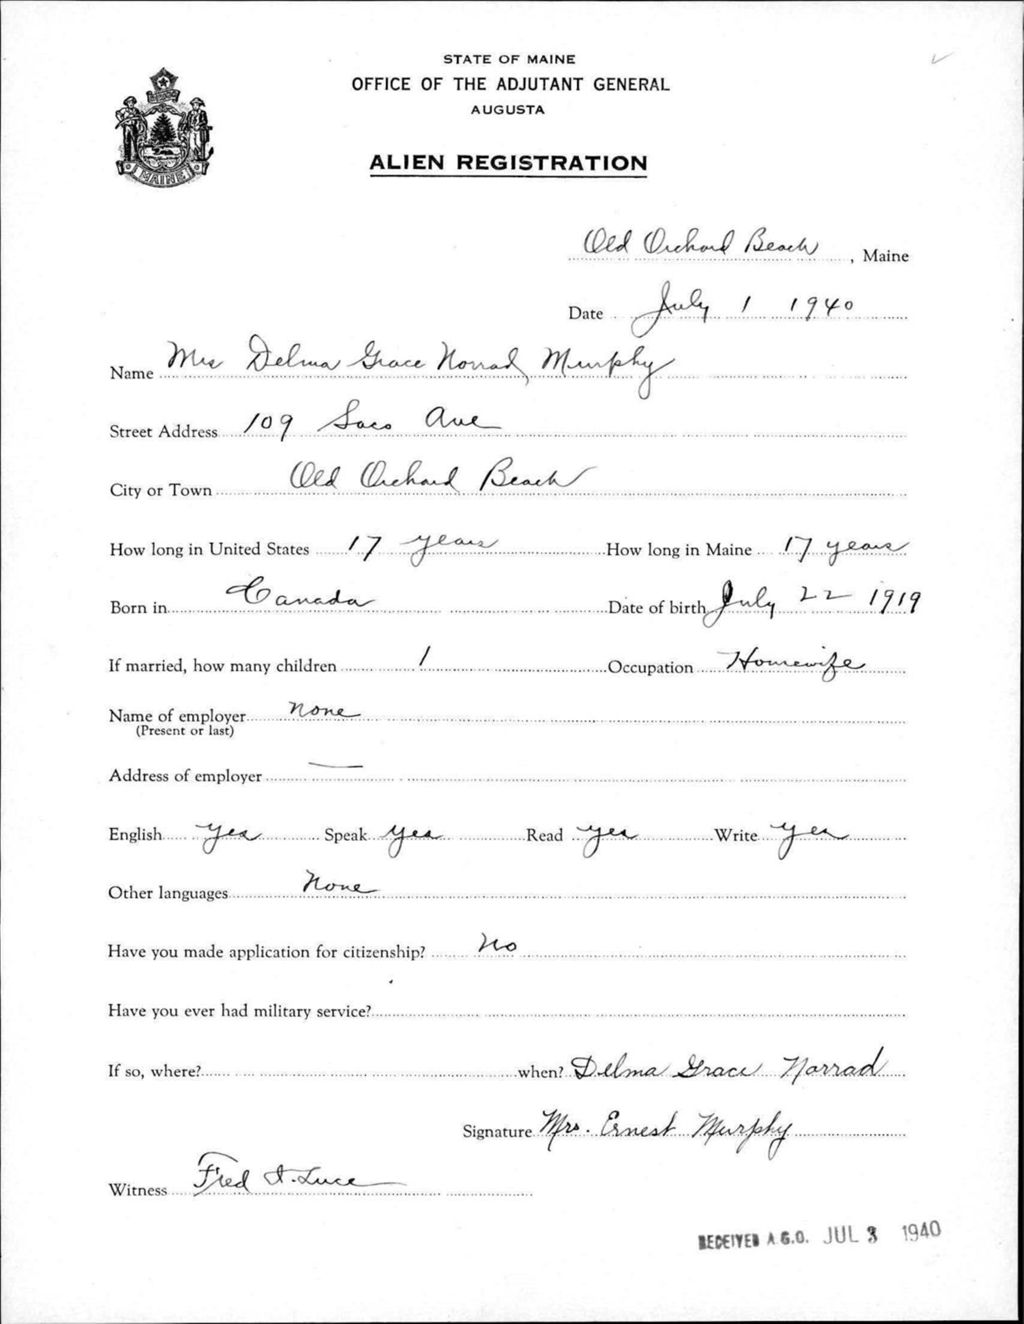 STATE OF MAINE
OFFICE OF THE ADJUTANT GENERAL
AUGUSTA
ALIEN REGISTRATION
MAINE
Old Orchard Beach, Maine
Date July 1 1940
Name Mrs Delma Grace Norrad Murphy
Street Address 109 Saco Ave
City or Town Old Orchard Beach
How long in United States 17 years How long in Maine 17 years
Born in Canada Date of birth July 22 1919
If married, how many children 1 Occupation Homewife
Name of employer none
(Present or last)
Address of employer —
English yes Speak yes Read yes Write yes
Other languages None
Have you made application for citizenship? No
Have you ever had military service?
If so, where? when? Delma Grace Norrad
Signature Mrs. Ernest Murphy
Witness Fred A. Luce
RECEIVED A.G.O. JUL 3 1940